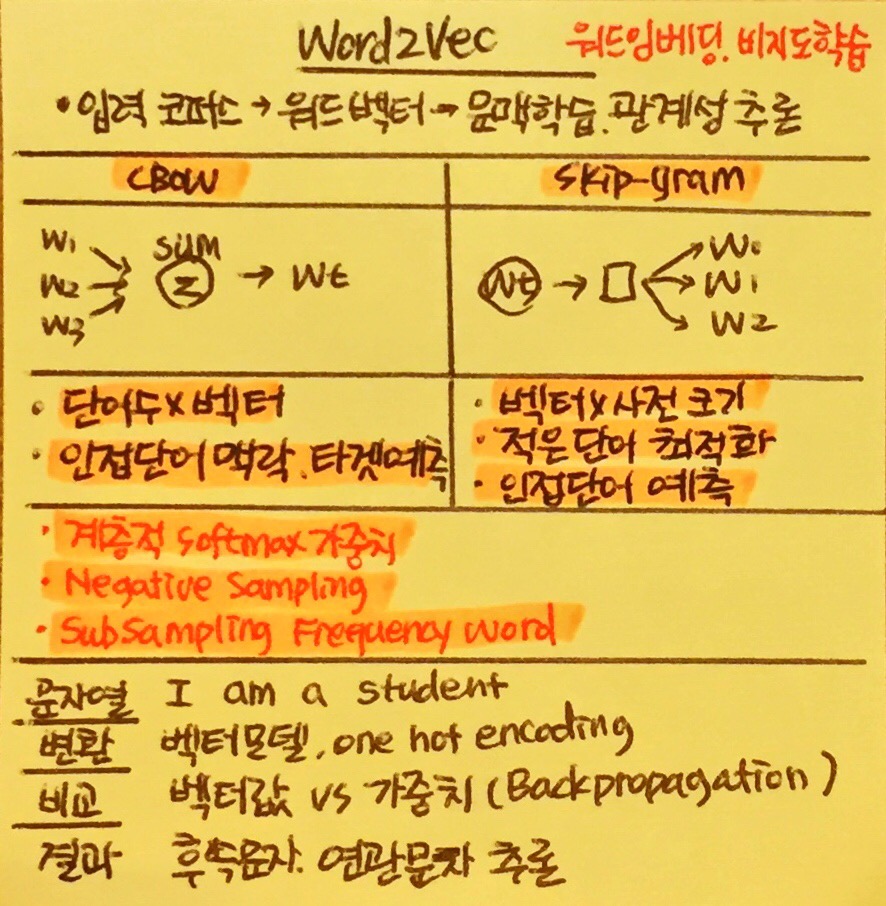 Word2Vec 워드임베딩. 비지도학습
• 입력 코퍼스 → 워드벡터 → 문맥학습. 관계성 추론
CBOW
Skip-gram
W1
W2
W3
SUM
Σ
→ Wt
Wt
→
W0
W1
W2
• 단어수 x 벡터
• 인접단어 맥락. 타겟예측
• 벡터 x 사전 크기
• 적은 단어 최적화
• 인접단어 예측
• 계층적 Softmax 가중치
• Negative Sampling
• SubSampling Frequency word
문자열 I am a student
변환 벡터모델, one hot encoding
비교 벡터값 vs 가중치 (Backpropagation)
결과 후속문자. 연관문자 추론